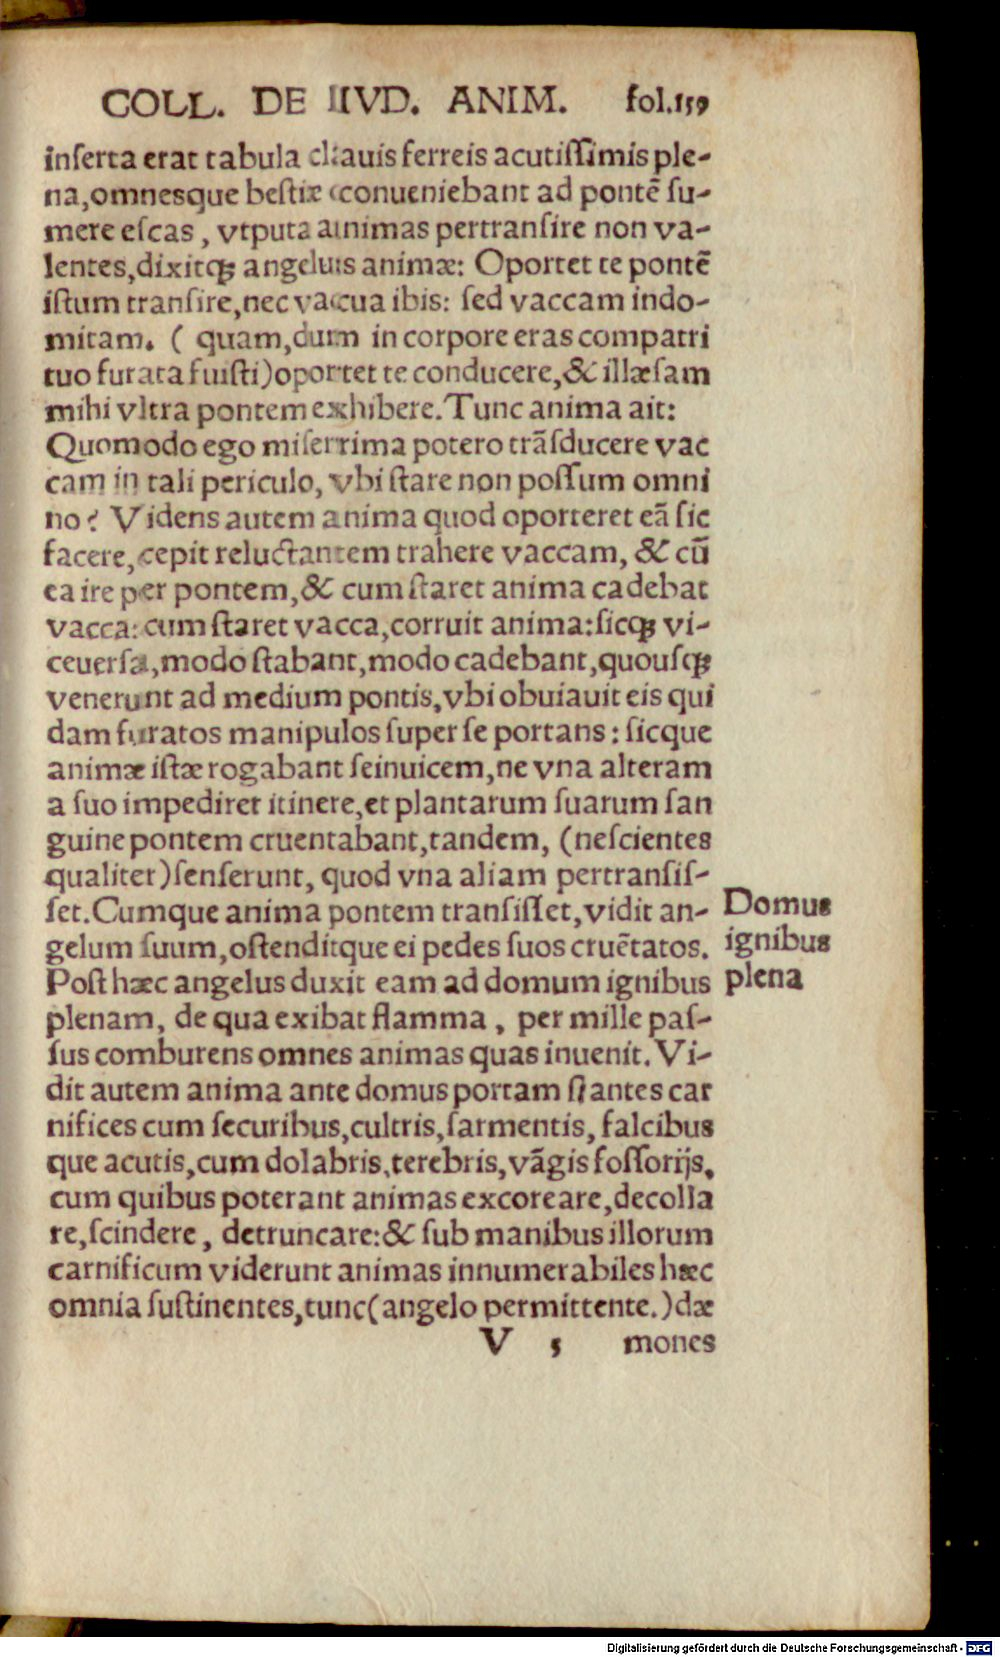 COLL. DE IIVD. ANIM. fol.159
inſerta erat tabula clauis ferreis acutiſſimis ple-
na,omnesque beſtiæ conueniebant ad pontē ſu-
mere eſcas, vtputa animas pertranſire non va-
lentes,dixitqꝫ angelus animæ: Oportet te pontē
iſtum tranſire,nec vacua ibis: ſed vaccam indo-
mitam. ( quam,dum in corpore eras compatri
tuo furata fuiſti)oportet te conducere,& illæſam
mihi vltra pontem exhibere.Tunc anima ait:
Quomodo ego miſerrima potero trāſducere vac
cam in tali periculo, vbi ſtare non poſſum omni
no? Videns autem anima quod oporteret eā ſic
facere,cepit reluctantem trahere vaccam, & cū
ea ire per pontem,& cum ſtaret anima cadebat
vacca: cum ſtaret vacca,corruit anima:ſicqꝫ vi-
ceuerſa,modo ſtabant,modo cadebant,quouſqꝫ
venerunt ad medium pontis,vbi obuiauit eis qui
dam furatos manipulos ſuper ſe portans: ſicque
animæ iſtæ rogabant ſeinuicem,ne vna alteram
a ſuo impediret itinere,et plantarum ſuarum ſan
guine pontem cruentabant,tandem, (neſcientes
qualiter)ſenſerunt, quod vna aliam pertranſiſ-
ſet.Cumque anima pontem tranſiſſet,vidit an-
gelum ſuum,oſtenditque ei pedes ſuos cruētatos.
Poſt hæc angelus duxit eam ad domum ignibus
plenam, de qua exibat flamma, per mille paſ-
ſus comburens omnes animas quas inuenit. Vi-
dit autem anima ante domus portam ſtantes car
nifices cum ſecuribus,cultris,ſarmentis, falcibus
que acutis,cum dolabris,terebris,vāgis foſſorijs,
cum quibus poterant animas excoreare,decolla
re,ſcindere, detruncare:& ſub manibus illorum
carnificum viderunt animas innumerabiles hæc
omnia ſuſtinentes,tunc(angelo permittente.)dæ
V 5 mones
Domus
ignibus
plena
Digitalisierung gefördert durch die Deutsche Forschungsgemeinschaft - DFG